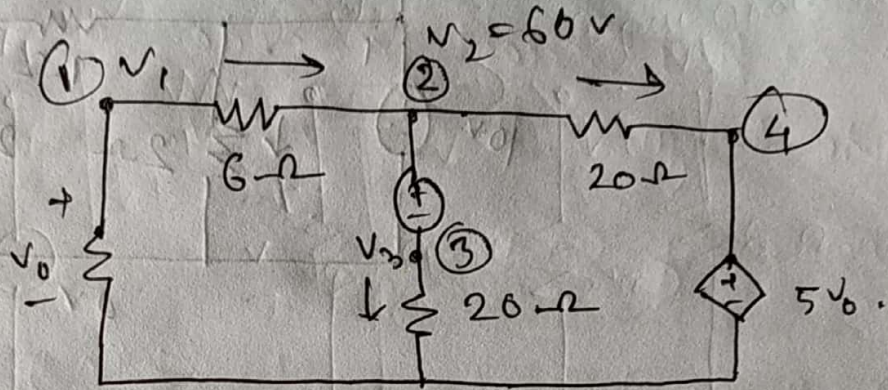 ① V₁
V₂ = 60 V
②
④
6 Ω
20 Ω
+
V₀
−
+
−
V₃
③
20 Ω
+
−
5V₀.